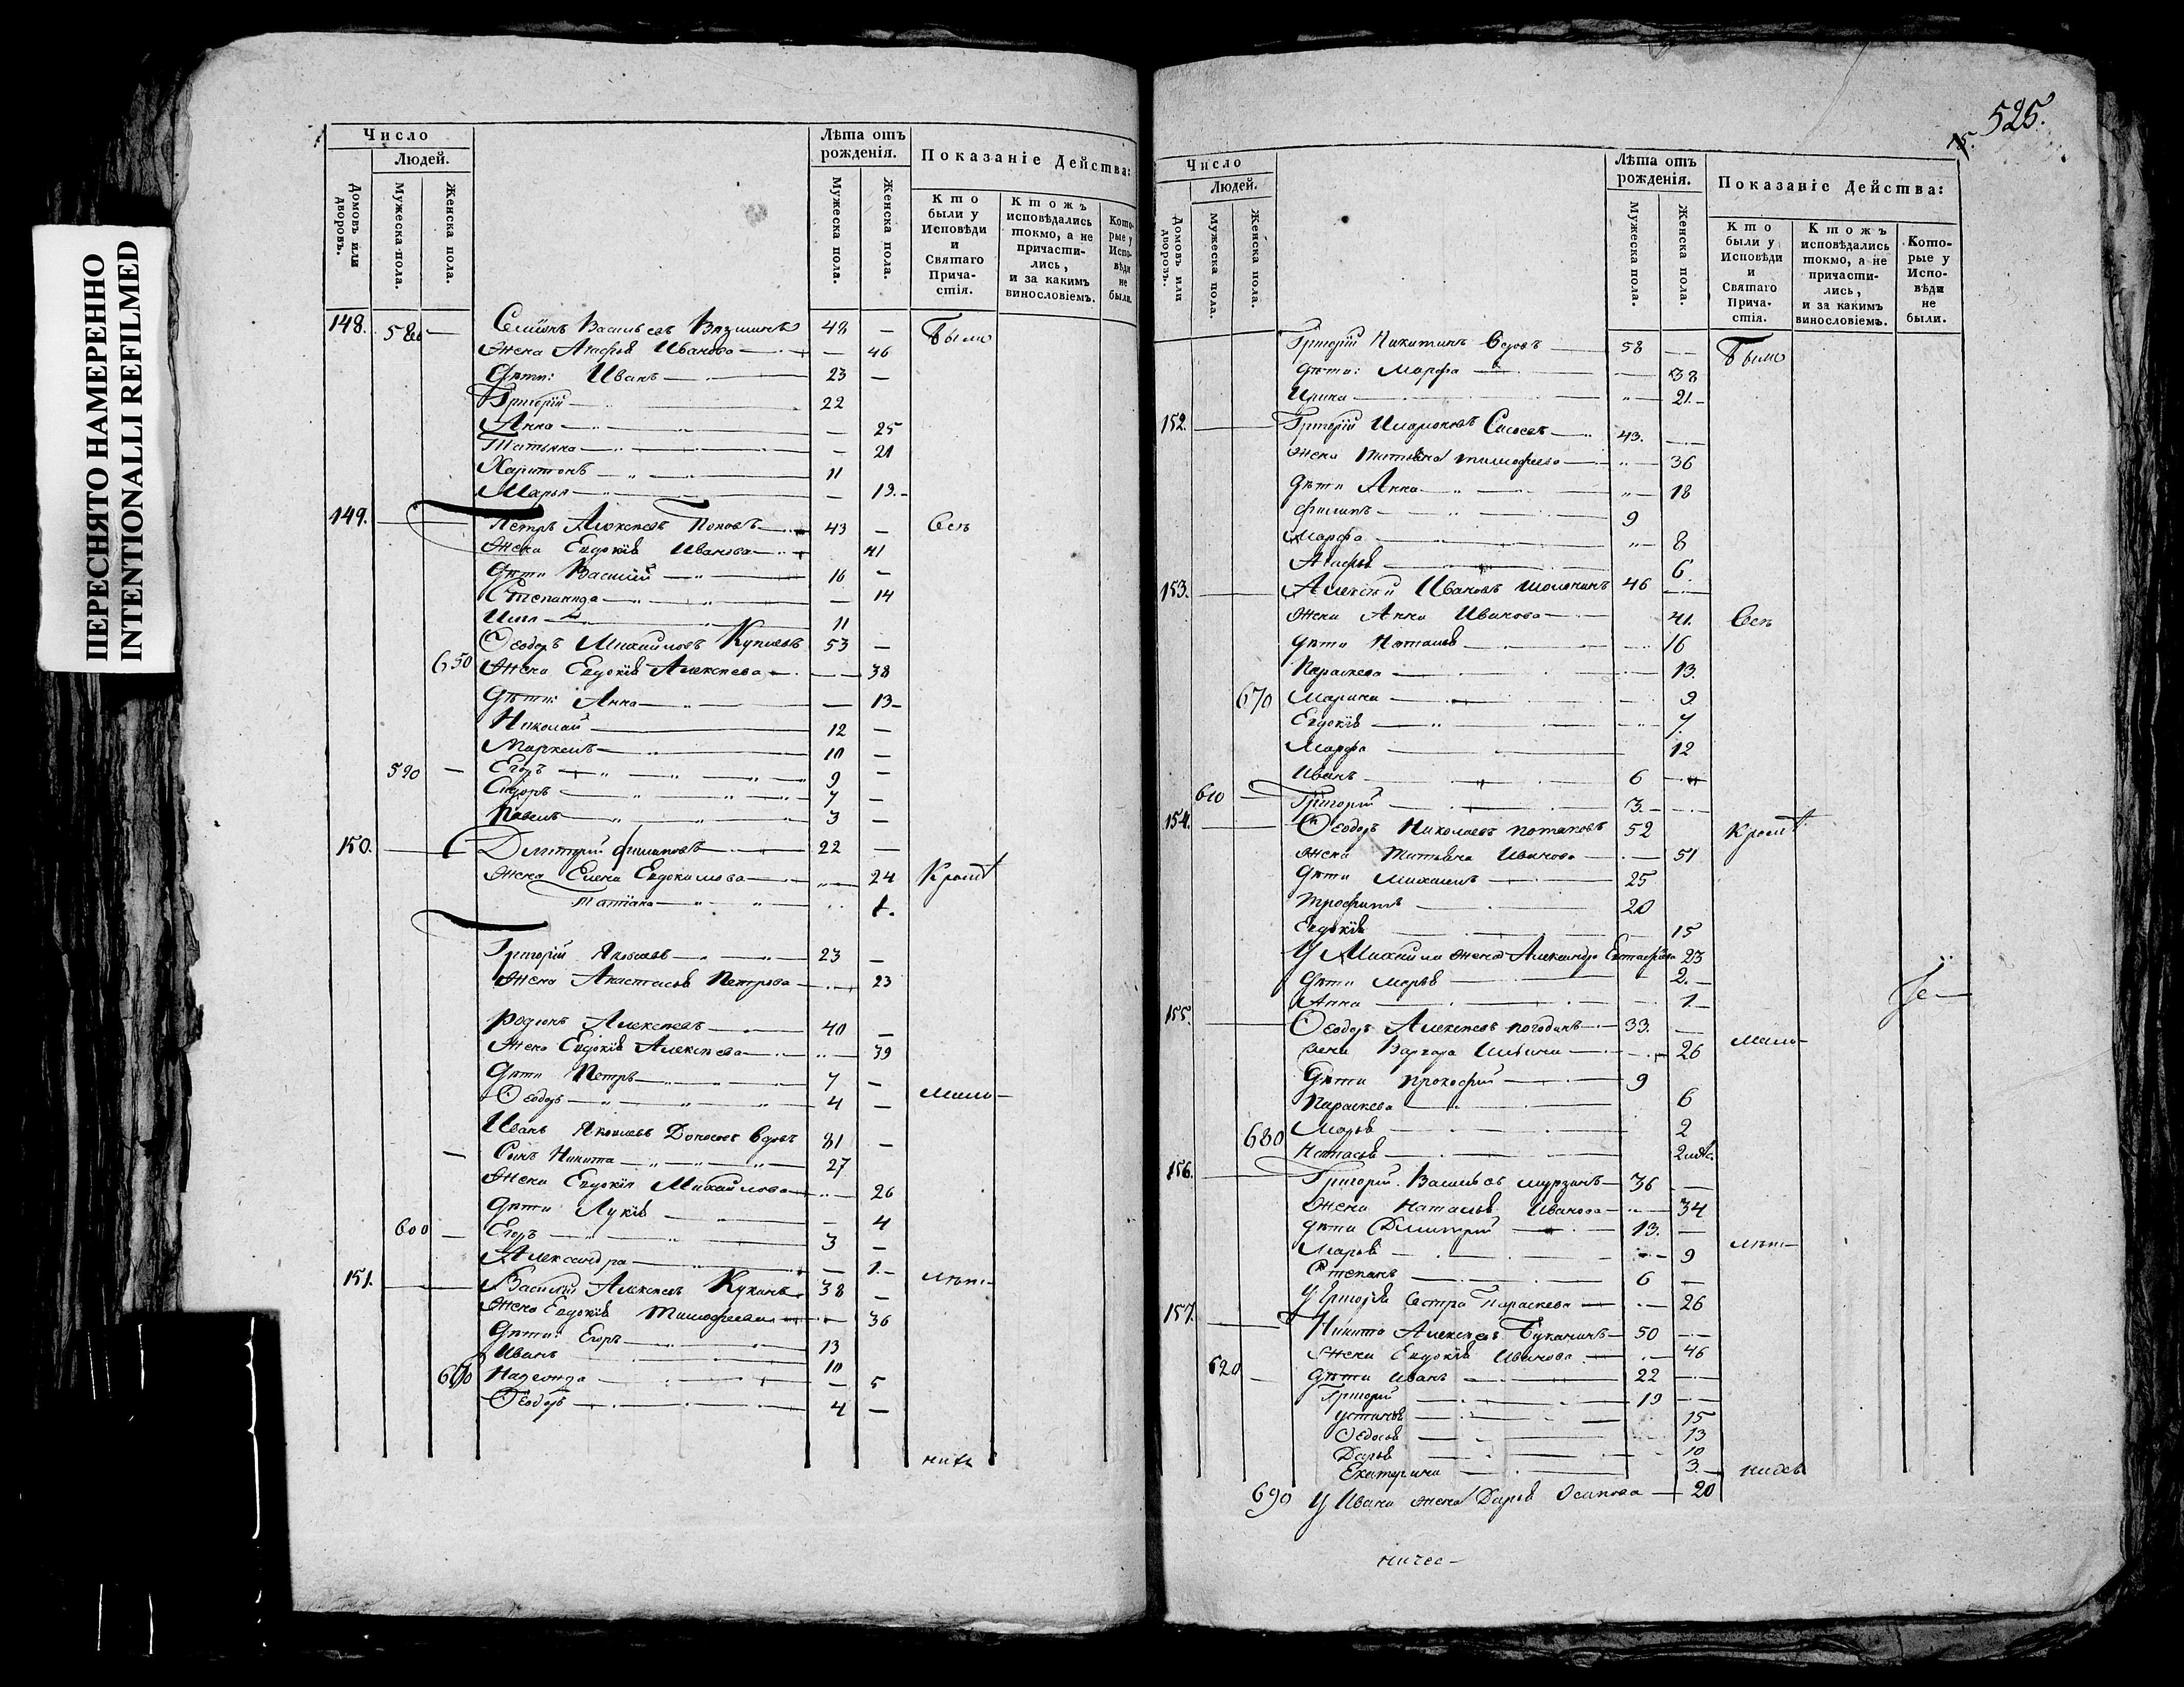 ПЕРЕСНЯТО НАМЕРЕННО
INTENTIONALLI REFILMED
Число
Людей.
Домовъ или дворовъ.
Мужеска пола.
Женска пола.
Лѣта отъ рожденія.
Мужеска пола.
Женска пола.
Показаніе Действа:
Кто были у Исповѣди и Святаго Прича-стія.
Ктожъ исповѣдались токмо, а не причасти-лись, и за какимъ винословіемъ.
Кото-рые у Испо-вѣди не были.
148. 580 — Семіонъ Васильевъ 48 — Были
Жена Агафья Иванова — 46
Дѣти: Иванъ 23 —
Григорій 22
Анна — 25
Татьяна — 21
Харитонъ 11
Марья — 19
149. Петръ Алексеевъ Поповъ 43 — Всѣ
Жена Евдокія Иванова 41
Дѣти Василій 16 —
Степанида — 14
Илья 11
Ѳеодоръ Михайловъ 53 —
650 Жена Евдокія Алексеева — 38
Дѣти: Анна — 13
Николай 12 —
Маркелъ 10 —
590 — Егоръ 9 —
Сидоръ 7 —
Павелъ 3 —
150. Димитрій Филиповъ 22 —
Жена Елена Евдокимова — 24
Татіана 1.
Григорій Яковлевъ 23 —
Жена Анастасья Петрова 23
Родіонъ Алексеевъ 40 —
Жена Евдокія Алексеева 39
Дѣти Петръ 7 —
Ѳеодоръ 4 —
Иванъ Яковлевъ вдовъ 81 —
Сынъ Никита 27
Жена Евдокія Михайлова 26
Дѣти Лукія — 4
600 — Егоръ 3 —
Александра — 1.
151. Василій Алексеевъ Кукинъ 38 —
Жена Евдокія Тимофеева — 36
Дѣти: Егоръ 13
Иванъ 10
Надежда — 5
Ѳеодоръ 4 —
525.
15.
Число
Людей.
Домовъ или дворовъ.
Мужеска пола.
Женска пола.
Лѣта отъ рожденія.
Мужеска пола.
Женска пола.
Показаніе Действа:
Кто были у Исповѣди и Святаго Прича-стія.
Ктожъ исповѣдались токмо, а не причасти-лись, и за какимъ винословіемъ.
Кото-рые у Испо-вѣди не были.
Григорій Никитинъ вдовъ 58 — Были
Дѣти: Марфа 38
Ирина 21.
152. Григорій 43.
Жена Татьяна Тимофеева 36
Дѣти Анна 18
Филипъ 9
Марфа 8
Агафья 6.
153. Алексѣй Ивановъ 46 —
Жена Анна Иванова 41. Всѣ
Дѣти Наталья 16
Параскева 13.
670 Марина 9
Евдокія 7.
Марфа 12
Иванъ 6
610 Григорій 3.
154. Ѳеодоръ Николаевъ Потаповъ 52
Жена Татьяна Иванова 51
Дѣти Михаилъ 25
Трофимъ 20
Евдокія 15
У Михаила жена Александра 23
Дѣти Марья 2.
Анна 1
155. Ѳеодоръ Алексеевъ Погодинъ 33.
жена Варвара Ильина 26
Дѣти Прокофій 9
Параскева 6
680 Марья 2
Настасья
156. Григорій Васильевъ Мурзинъ 36 —
Жена Наталья Иванова 34
Дѣти Димитрій 13. —
Марья 9
Степанъ 6 —
У Григорія сестра Параскева 26
157. Никита Алексеевъ Буканинъ 50 —
Жена Евдокія Иванова 46
620 Дѣти Иванъ 22 —
Григорій 19 —
Устинья 15
Ѳедосья 13
Дарья 10
Екатерина 3.
690 У Ивана жена Дарья Осипова 20